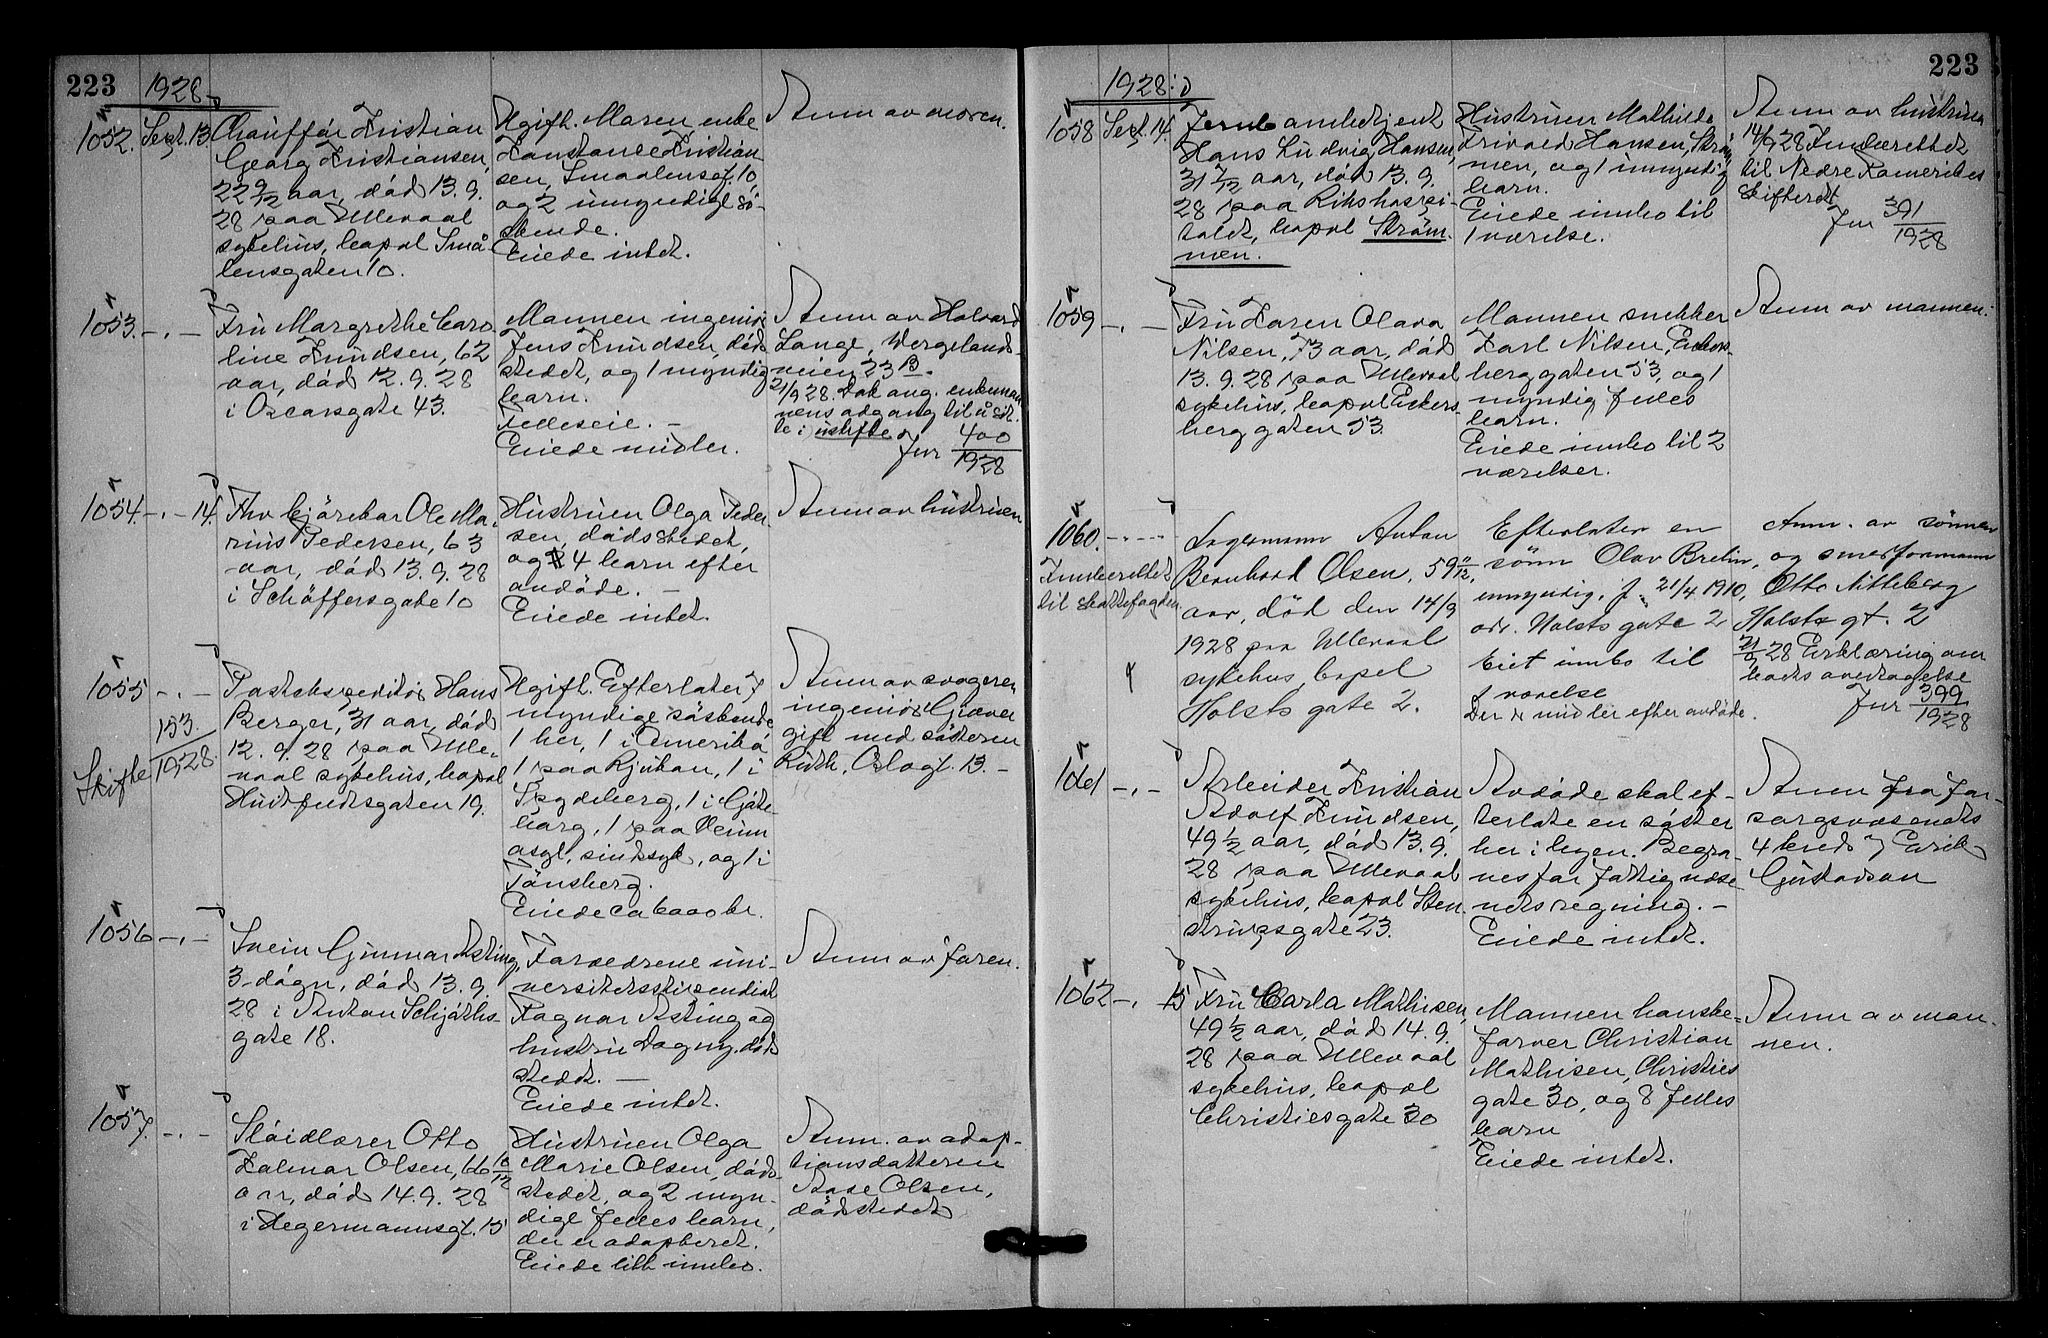 223
1928
1052. Sept. 13.
Chauffør Kristian
Georg Kristiansen,
22 9/12 aar, död 13.9.
28 paa Ullevaal
sykehus, bopæl Små
lensgaten 10.
Ugift. Moren enke
Konstance Kristian
sen, Smaalensgt. 10
og 2 umyndige sö-
skende.
Eiede intet.
Anm av moren.
1053. -.-
Fru Margrethe Caro
line Knudsen, 62
aar, död 12.9.28
i Oscarsgate 43.
Mannen ingeniör
Jens Knudsen, död
stedet, og 1 myndig
barn.
Felleseie. -
Eiede midler.
Anm av Halvard
Lange, Wergelands
veien 23 B.
21/9 28. Dok ang. enkeman
nens adgang til å sit
te i uskifte
Jnr 400/1928
1054. -.- 14.
Fhv kjörekar Ole Ma-
rius Pedersen, 63
aar, död 13.9.28
i Schöffersgate 10
Hustruen Olga Peder-
sen, dödsstedet,
og 4 barn efter
avdöde. -
Eiede intet.
Anm av hustruen
1055 -.-
Skifte 153./1928.
Postekspeditör Hans
Berger, 31 aar, död
12.9.28 paa Ulle-
vaal sykehus, bopæl
Huitfeldtsgaten 19.
Ugift. Efterlater 7
myndige söskende
1 her, 1 i Amerika
1 paa Rjukan, 1 i
Spydeberg, 1 i Göte-
borg, 1 paa Presteseter
asyl, sindsyk, og 1 i
Tönsberg.
Eiede ca 6000 kr.
Anm av svogeren
ingeniör Giæver
gift med sösteren
Ruth, Oslogt. 13. -
1056 -.-
Svein Gunnar Asting,
3 dögn, död 13.9.
28 i Anton Schjöths-
gate 18.
Foreldrene uni-
versitetsstipendiat
Ragnar Asting og
hustru Dagny, död
stedet. -
Eiede intet.
Anm av faren.
1057. -.-
Slöidlærer Otto
Kalmar Olsen, 66 10/12
aar, död 14.9.28
i Hegermannsgt. 15
Hustruen Olga
Marie Olsen, död
stedet, og 2 myn-
dige felles barn,
der er adoptert.
Eiede litt innbo.
Anm. av adop-
tionsdatteren
Aase Olsen,
dödstedet
223
1928
1058 Sept. 14.
Jernb ambetjent
Hans Ludvig Hansen,
31 7/12 aar, död 13.9.
28 paa Rikshospi-
talet, bopæl Ström-
men.
Hustruen Mathilde
Hansen, Ström
men, og 1 umyndig
barn.
Eiede innbo til
1 værelse.
Anm av hustruen
14/9 28 Innberettet
til Nedre Romerikes
skifterett
Jnr 391/1928
1059 -.-
Fru Karen Olava
Nilsen, 73 aar, död
13.9.28 paa Ullevaal
sykehus, bopæl Eckers-
berggaten 53.
Mannen snekker
Karl Nilsen, Eckers-
berggaten 53, og 1
myndig felles
barn.
Eiede innbo til 2
værelser.
Anm av mannen.
1060. -.-.-
Innberettet
til skattefogden.
Lagermann Anton
Bernhard Olsen, 59 11/12
aar, död den 14/9
1928 paa Ullevaal
sykehus, bopel
Holsts gate 2.
Efterlater en
sönn Olav Brelin,
umyndig, f. 21/4 1910,
adr. Holsts gate 2
Eiet innbo til
1 værelse
Der er midler efter avdöde.
Anm. av sönnen
og smedformann
Otto Nitteberg
Holsts gt. 2
21/9 28 Erklæring om
boets overtagelse
Jnr 399/1928
1061 -.-
Arbeider Kristian
Adolf Knudsen,
49 1/2 aar, död 13.9.
28 paa Ullevaal
sykehus, bopæl Sten
strupsgate 23.
Avdöde skal ef-
terlate en söster
her i byen. Begra-
ves for fattigvæse
nets regning. -
Eiede intet.
Anm fra For-
sorgsvæsenets
4 kreds v/ Eirik
Gustavson
1062 -.- 15
Fru Carla Mathisen,
49 1/2 aar, död 14.9.
28 paa Ullevaal
sykehus, bopæl
Christiesgate 30
Mannen hanske-
farver Christian
Mathisen, Christies
gate 30, og 8 felles
barn
Eiede intet.
Anm av man-
nen.